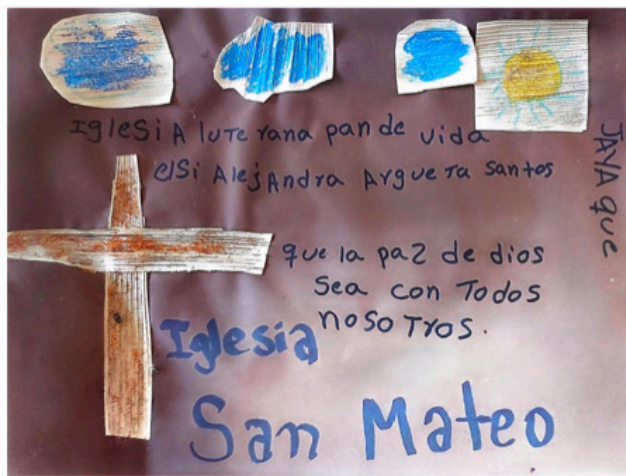 IglesiA luterana pan de vida
elSi AlejAndra Argueta santos
JAYAque
que la paz de dios
sea con Todos
nosotros.
Iglesia
San Mateo